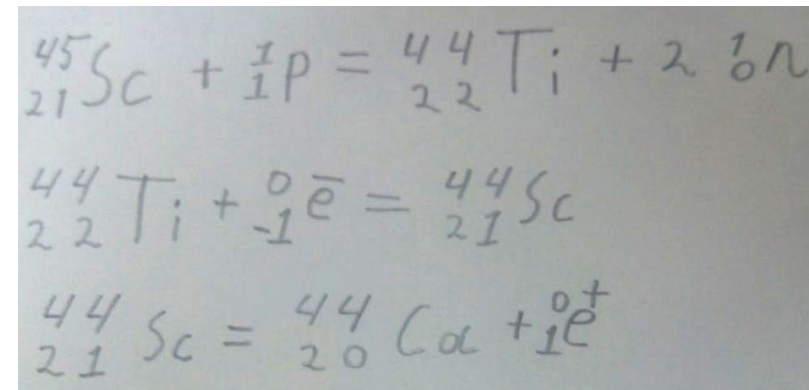 ⁴⁵₂₁Sc + ¹₁p = ⁴⁴₂₂Ti + 2 ¹₀n
⁴⁴₂₂Ti + ⁰₋₁e̅ = ⁴⁴₂₁Sc
⁴⁴₂₁Sc = ⁴⁴₂₀Ca + ⁰₁e⁺